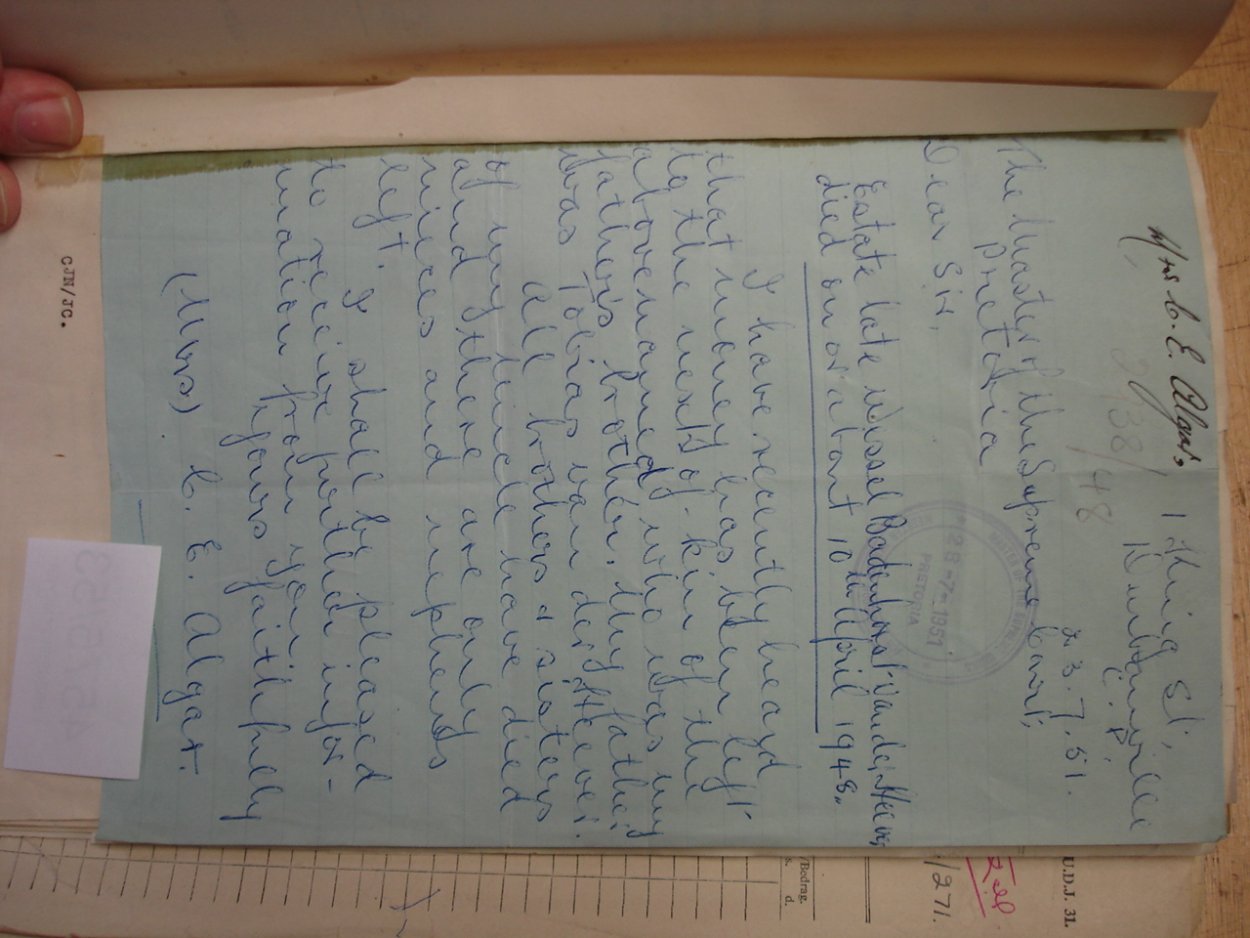 Mrs C. E. Algar,
1 King St.,
C. P.
23.7.51.
3138/48
The Master of the Supreme Court,
Pretoria
29-7-1951
PRETORIA
Dear Sir,
Estate late Wessel Badenhorst Vander Heever,
died on or about 10th April 1948.
I have recently heard
that money has been left
to the next-of-kin of the
abovenamed who was my
father's brother. My father
was Tobias van der Heever.
All brothers & sisters
of my uncle have died
and there are only
nieces and nephews
left.
I shall be pleased
to receive further infor-
mation from you.
Yours faithfully
(Mrs) C. E. Algar.
CJN/JC.
U.D.J. 31.
/271.
/Bedrag.
s. d.